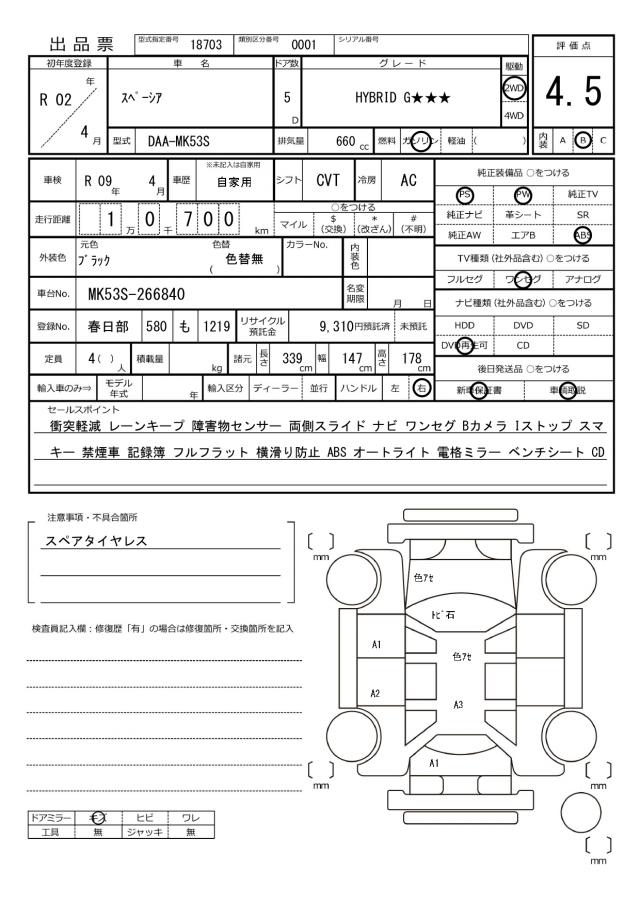 出品票 型式指定番号 18703 類別区分番号 0001 シリアル番号
評価点
初年度登録 車名 ドア数 グレード 駆動
R 02 年 4 月 ｽﾍﾟｰｼｱ 5 D HYBRID G★★★ 2WD 4WD
4.5
型式 DAA-MK53S 排気量 660 cc 燃料 ガソリン 軽油 ( )
内装 A B C
車検 R 09 年 4 月 車歴 ※未記入は自家用 自家用 シフト CVT 冷房 AC
純正装備品 ○をつける
PS PW 純正TV
走行距離 1 万 0 千 7 0 0 km
○をつける
マイル $ (交換) * (改ざん) # (不明)
純正ナビ 革シート SR
純正AW エアB ABS
外装色 元色 ﾌﾞﾗｯｸ 色替 ( 色替無 ) カラーNo. 内装色
TV種類 (社外品含む) ○をつける
フルセグ ワンセグ アナログ
車台No. MK53S-266840 名変期限 月 日
ナビ種類 (社外品含む) ○をつける
登録No. 春日部 580 も 1219 リサイクル預託金 9,310円預託済 未預託
HDD DVD SD
DVD再生可 CD
定員 4 ( ) 人 積載量 kg 諸元 長さ 339 cm 幅 147 cm 高さ 178 cm
後日発送品 ○をつける
輸入車のみ⇒ モデル年式 年 輸入区分 ディーラー 並行 ハンドル 左 右
新車保証書 車輌取説
セールスポイント
衝突軽減 レーンキープ 障害物センサー 両側スライド ナビ ワンセグ Bカメラ Iストップ スマ
キー 禁煙車 記録簿 フルフラット 横滑り防止 ABS オートライト 電格ミラー ベンチシート CD
注意事項・不具合箇所
スペアタイヤレス
検査員記入欄：修復歴「有」の場合は修復箇所・交換箇所を記入
mm
mm
色ｱｾ
ﾄﾋﾞ石
A1
色ｱｾ
A2
A3
A1
mm
mm
ドアミラー キズ ヒビ ワレ
工具 無 ジャッキ 無
mm